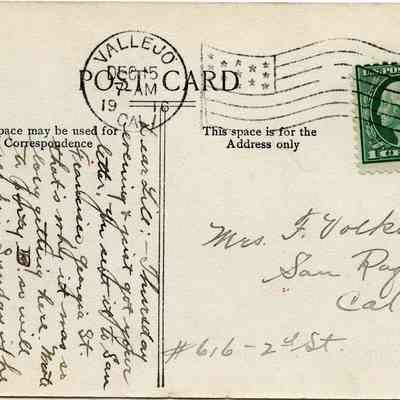 VALLEJO
DEC 15
7 AM
1916
CAL.
POST CARD
pace may be used for
Correspondence
This space is for the
Address only
Dear Lill:- Thursday
evening & just got your
letter. You sent it to San
Francisco Georgia St.
that's why it was so
long getting here. Wrote
so will
Mrs. F. Volk
San Raf
Cal
#616-2nd St.
U.S. POS